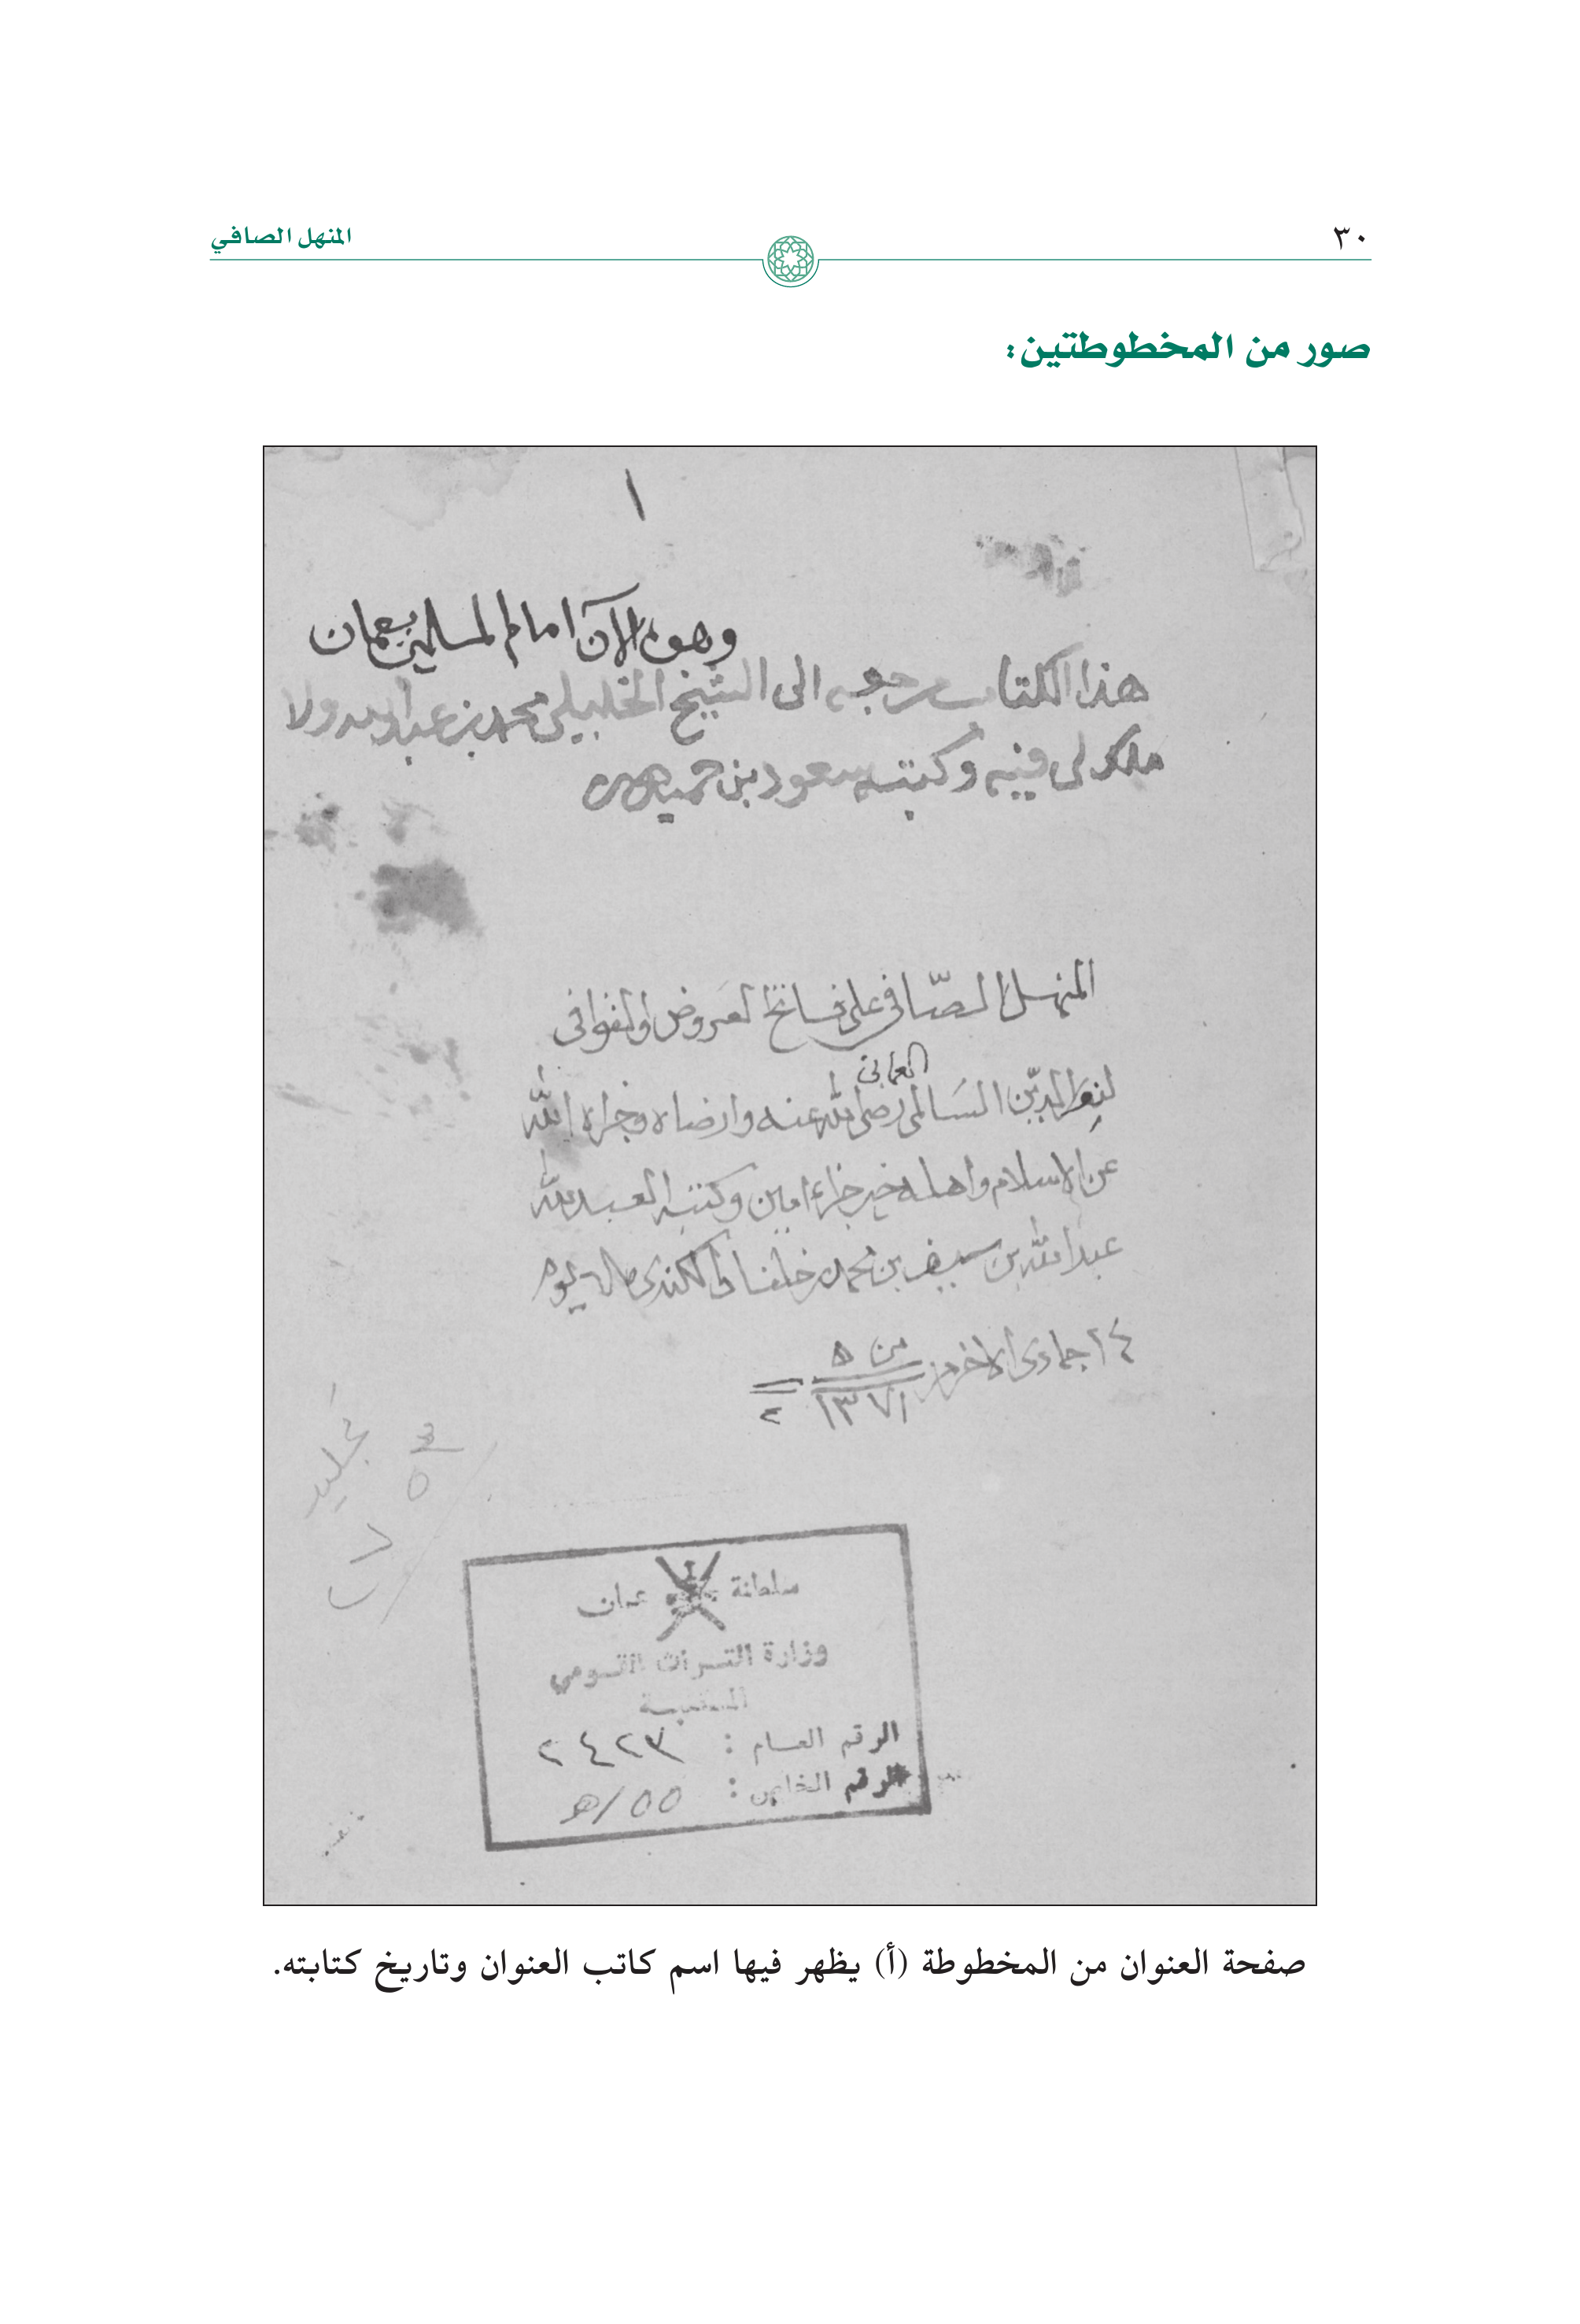 ٣٠
المنهل الصافي
صور من المخطوطتين:
١
وهو الآن امام المسلمين بعمان
هذا الكتاب مرجعه الى الشيخ الخليلي محمد بن عبدالله ولا
ملك لى فيه وكتبه سعود بن حميد
المنهل الصّافى على فاتح العروض والقوافى
العمانى
لنور الدّين السَالمى رضى الله عنه وارضاه وجزاه الله
عن الاسلام واهله خير جزاء امين وكتبه العبد لله
عبدالله بن سيف بن محمد بن خلفان الكندى يوم
١٤ جمادى الاخر من
١٣٧١
٢
٣
٥
سلطنة عمان
وزارة التراث القومي
الرقم العام : ٢٤٢٣
الرقم الخاص : ٥٥/هـ
صفحة العنوان من المخطوطة (أ) يظهر فيها اسم كاتب العنوان وتاريخ كتابته.